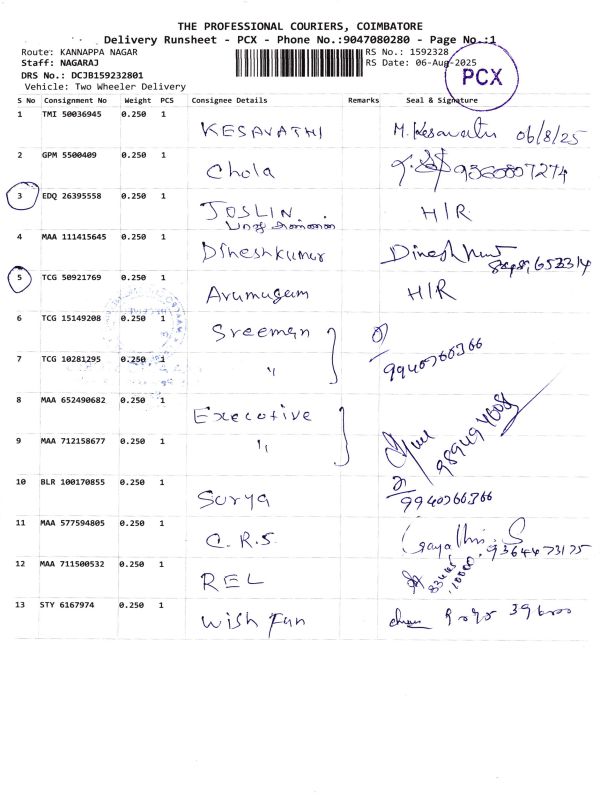 THE PROFESSIONAL COURIERS, COIMBATORE
Delivery Runsheet - PCX - Phone No.:9047080280 - Page No.:1
Route: KANNAPPA NAGAR RS No.: 1592328
Staff: NAGARAJ RS Date: 06-Aug-2025
DRS No.: DCJB159232801
PCX
Vehicle: Two Wheeler Delivery
S No Consignment No Weight PCS Consignee Details Remarks Seal & Signature
1 TMI 50036945 0.250 1 KESAVATHI M. Kesavathi 06/8/25
2 GPM 5500409 0.250 1 Chola 9360807274
3 EDQ 26395558 0.250 1 JOSLIN H/R
4 MAA 111415645 0.250 1 Dineshkumar Dinesh
5 TCG 50921769 0.250 1 Arumugam H/R
6 TCG 15149208 0.250 1 Sreeman
7 TCG 10281295 0.250 1 " 9940766366
8 MAA 652490682 0.250 1 Executive
9 MAA 712158677 0.250 1 " 9894974008
10 BLR 100170855 0.250 1 Surya 9940766366
11 MAA 577594805 0.250 1 C.R.S. Gayathri. S 9364473175
12 MAA 711500532 0.250 1 REL
13 STY 6167974 0.250 1 Wish Fun